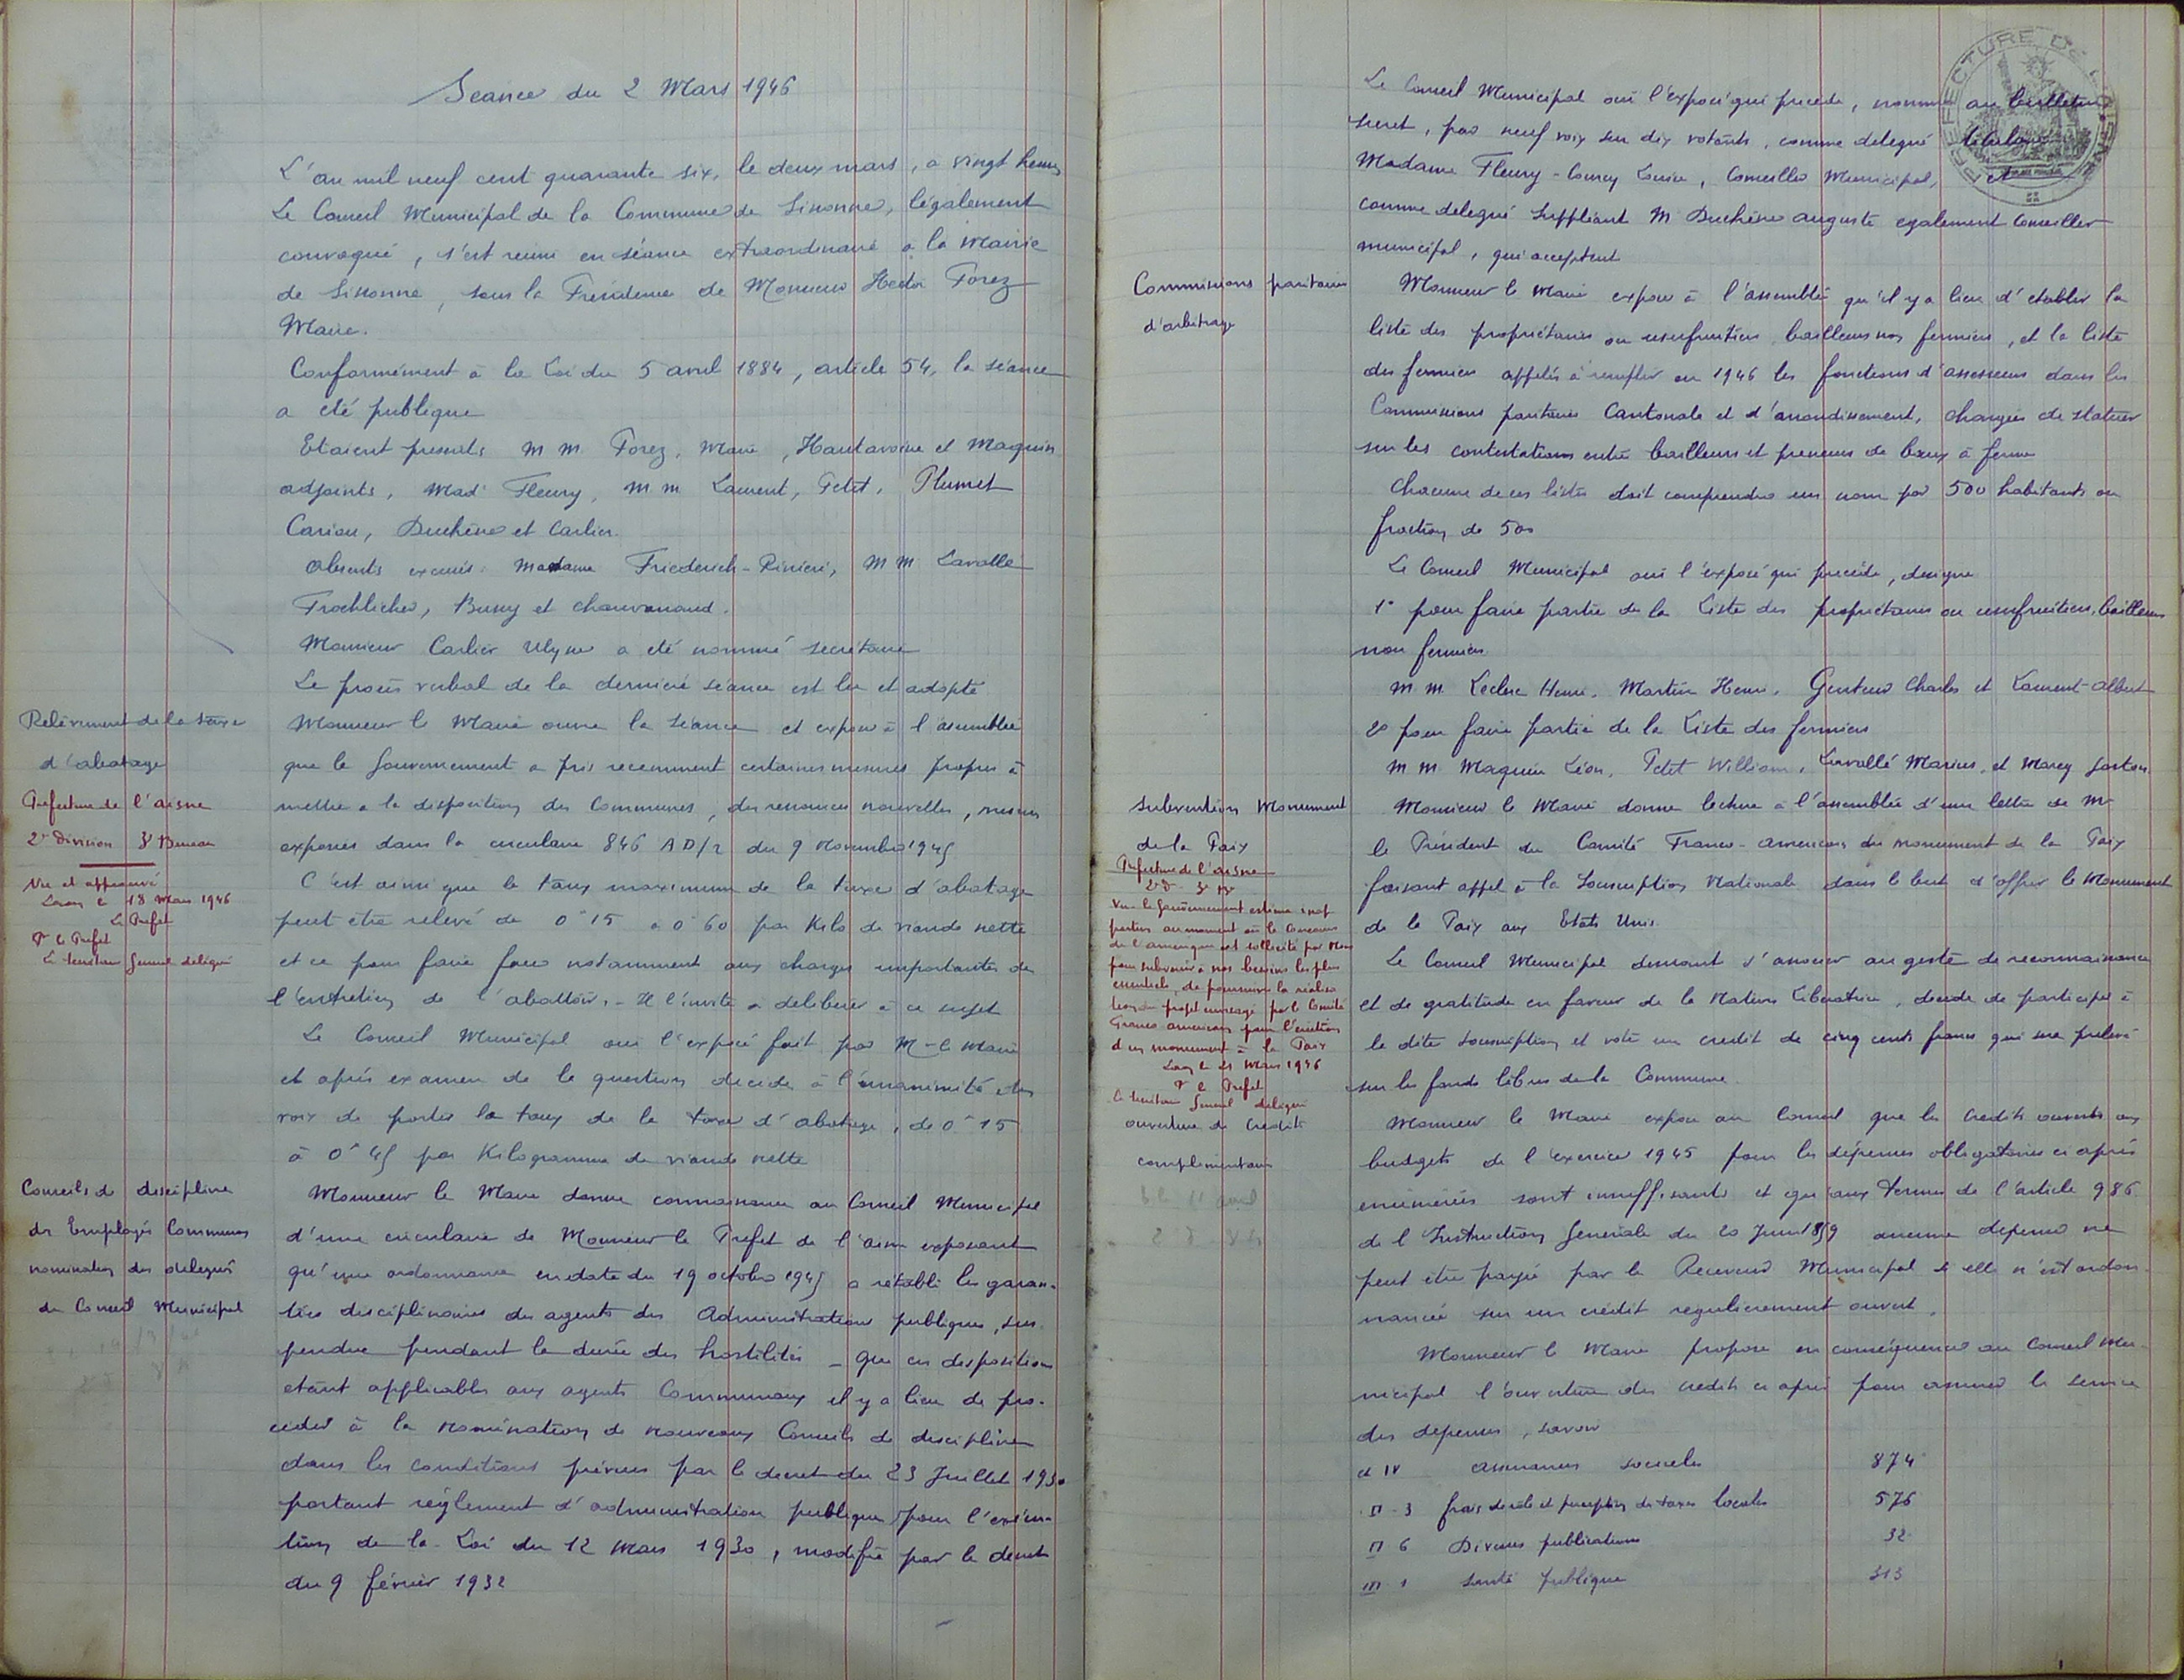 Seance du 2 Mars 1946
L'an mil neuf cent quarante six, le deux mars, a vingt heures
Le Conseil Municipal de la Commune de Sissonne, légalement
convoqué, s'est reuni en séance extraordinaire a la Mairie
de Sissonne, sous la Présidence de Monsieur Hector Forez
Maire.
Conformément à la Loi du 5 avril 1884, article 54, la séance
a été publique
Etaient presents MM. Forez, Maire, Hautavoine et Maquin
adjoints, Mad Fleury, M.M. Laurent, Petit, Plumet
Cariou, Duchêne et Carlier.
Absents excusés: Madame Friederich-Rivière, MM Lavallé
Froehlicher, Busny et
Monsieur Carlier Ulysse a été nommé secrétaire
Le procès verbal de la dernière séance est lu et adopté
Relèvement de la taxe
d'abatage
Préfecture de l'Aisne
2e Division 3e Bureau
Vu et approuvé
Laon le 18 Mars 1946
Le Préfet
Pr le Préfet
Le Secrétaire Général délégué
Monsieur le Maire ouvre la séance et expose à l'assemblée
que le Gouvernement a pris recemment certaines mesures propres à
mettre a la disposition des Communes, des ressources nouvelles, mesures
exposées dans la circulaire 846 AD/2 du 9 Novembre 1945
C'est ainsi que le taux maximum de la taxe d'abatage
peut être relevé de 0f15 a 0f60 par Kilo de viande nette
et ce pour faire face notamment aux charges importantes de
l'entretien de l'abattoir. - Il l'invite a déliberer à ce sujet
Le Conseil Municipal oui l'exposé fait par M. le Maire
et après examen de la question decide à l'unanimité des
voix de porter le taux de la taxe d'abatage, de 0f15
à 0f45 par Kilogramme de viande nette
Conseils de discipline
des Employés Communaux
nomination des délégués
du Conseil Municipal
Monsieur le Maire donne connaissance au Conseil Municipal
d'une circulaire de Monsieur le Préfet de l'Aisne exposant
qu'une ordonnance en date du 19 octobre 1945 a rétabli les garan-
ties disciplinaires des agents des Administrations publiques, sus
pendues pendant la durée des hostilités - que ces dispositions
etant applicables aux agents Communaux il y a lieu de pro-
ceder à la nomination de nouveaux Conseils de discipline
dans les conditions prévues par le decret du 23 Juillet 1930
portant règlement d'administration publique pour l'exécu-
tion de la Loi du 12 Mars 1930, modifié par le decret
du 9 février 1932
PREFECTURE DE L'AISNE
Le Conseil Municipal oui l'exposé qui precede, nomme au bulletin
secret, par neuf voix sur dix votants, comme delegué titulaire
Madame Fleury-Courcy Louise, Conseiller Municipal, et
comme delegué Suppléant M Duchêne auguste egalement Conseiller
municipal, qui acceptent
Commissions paritaires
d'arbitrage
Monsieur le Maire expose à l'assemblée qu'il y a lieu d'etablir la
liste des propriétaires ou usufruitiers bailleurs non fermiers, et la liste
des fermiers appelés à remplir en 1946 les fonctions d'assesseurs dans les
Commissions paritaires Cantonale et d'arrondissement, chargées de statuer
sur les contestations entre bailleurs et preneurs de baux à ferme
Chacune de ces listes doit comprendre un nom par 500 habitants ou
fraction de 500
Le Conseil Municipal oui l'exposé qui precède, designe
1° pour faire partie de la Liste des proprietaires ou usufruitiers, bailleurs
non fermiers.
M.M. Leclerc Henri, Martin Henri, Charles et Laurent Albert
2° pour faire partie de la Liste des fermiers
M.M. Maquin Léon, Petit William, Lavallé Marius, et Marcy Gaston
Subvention Monument
de la Paix
Préfecture de l'Aisne
2e D 3e Br
Vu le Gouvernement estime inop
portun au moment où le Concours
de l'amerique est sollicité par Nous
pour subvenir à nos besoins les plus
essentiels, de poursuivre la réalisa
tion du projet envisagé par le Comité
Franco americain pour l'érection
d'un monument à la Paix
Laon le 21 Mars 1946
Pr le Préfet
Le Secrétaire Général délégué
Monsieur le Maire donne lecture à l'assemblée d'une lettre de Mr
le Président du Comité Franco-américain du monument de la Paix
faisant appel à la Souscription Nationale dans le but d'offrir le Monument
de la Paix aux Etats Unis.
Le Conseil Municipal désirant s'associer au geste de reconnaissance
et de gratitude en faveur de la Nation Libératrice, decide de participer à
la dite souscription et vote un credit de cinq cents francs qui sera prélevé
sur les fonds libres de la Commune.
ouverture de crédits
complémentaires
Monsieur le Maire expose au Conseil que les Credits ouverts aux
budgets de l'exercice 1945 pour les dépenses obligatoires ci après
enumérées sont insuffisants et qu'aux termes de l'article 986
de l'Instruction Générale du 20 Juin 1859 aucune depense ne
peut être payée par le Receveur Municipal si elle n'est ordon-
nancée sur un crédit regulierement ouvert.
Monsieur le Maire propose en conséquence au Conseil Mu-
nicipal l'ouverture des credits ci après pour assurer le service
des depenses, savoir
IV assurances sociales 874
II 3 frais de rôle et perception de taxes locales 576
II 6 Diverses publications 32
III 1 Santé publique 313